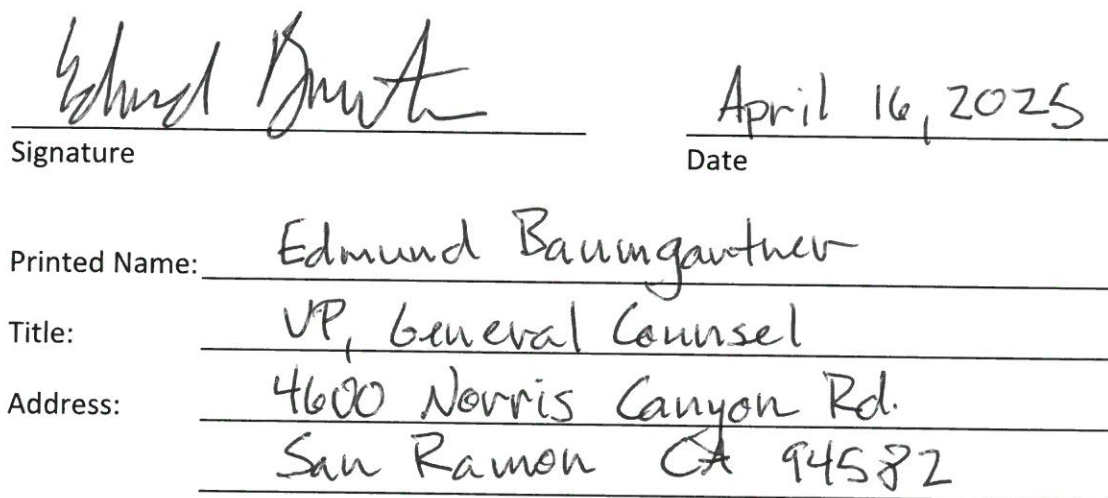 Edmund Baumgartner April 16, 2025
Signature Date
Printed Name: Edmund Baumgartner
Title: VP, General Counsel
Address: 4600 Norris Canyon Rd.
San Ramon CA 94582